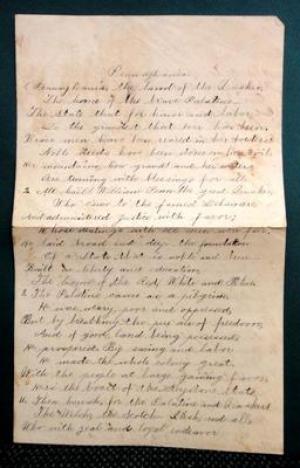 Pennsylvania
Pennsylvania, the land of the Quaker,
The home of the brave Palatine
The State that for honor and labor
Is the greatest that ever has been.
Wise men have been reared in her
Noble deeds have been done in
Her mountains, how grand and her
Are teeming with blessings for all
2 All hail! William Penn the great Quaker,
Who came to the famed Delaware
And administered justice with favor;
Whose dealings with all men were fair.
He laid broad and deep the foundation
Of a State that is noble and true
Built on liberty and education
The home of the Red, White and Blue.
3 The Palatine came as a pilgrim
He was weary, poor and oppressed,
But by breathing the pure air of freedom,
And of good land being possessed
He prospered By saving and labor
He made the whole colony great.
With the people at large gaining favor
the Keystone State
4 Then hurrah for the Palatine and Quaker
The Welch, the Scotch Irish, and all
Who with zeal and loyal endeavor